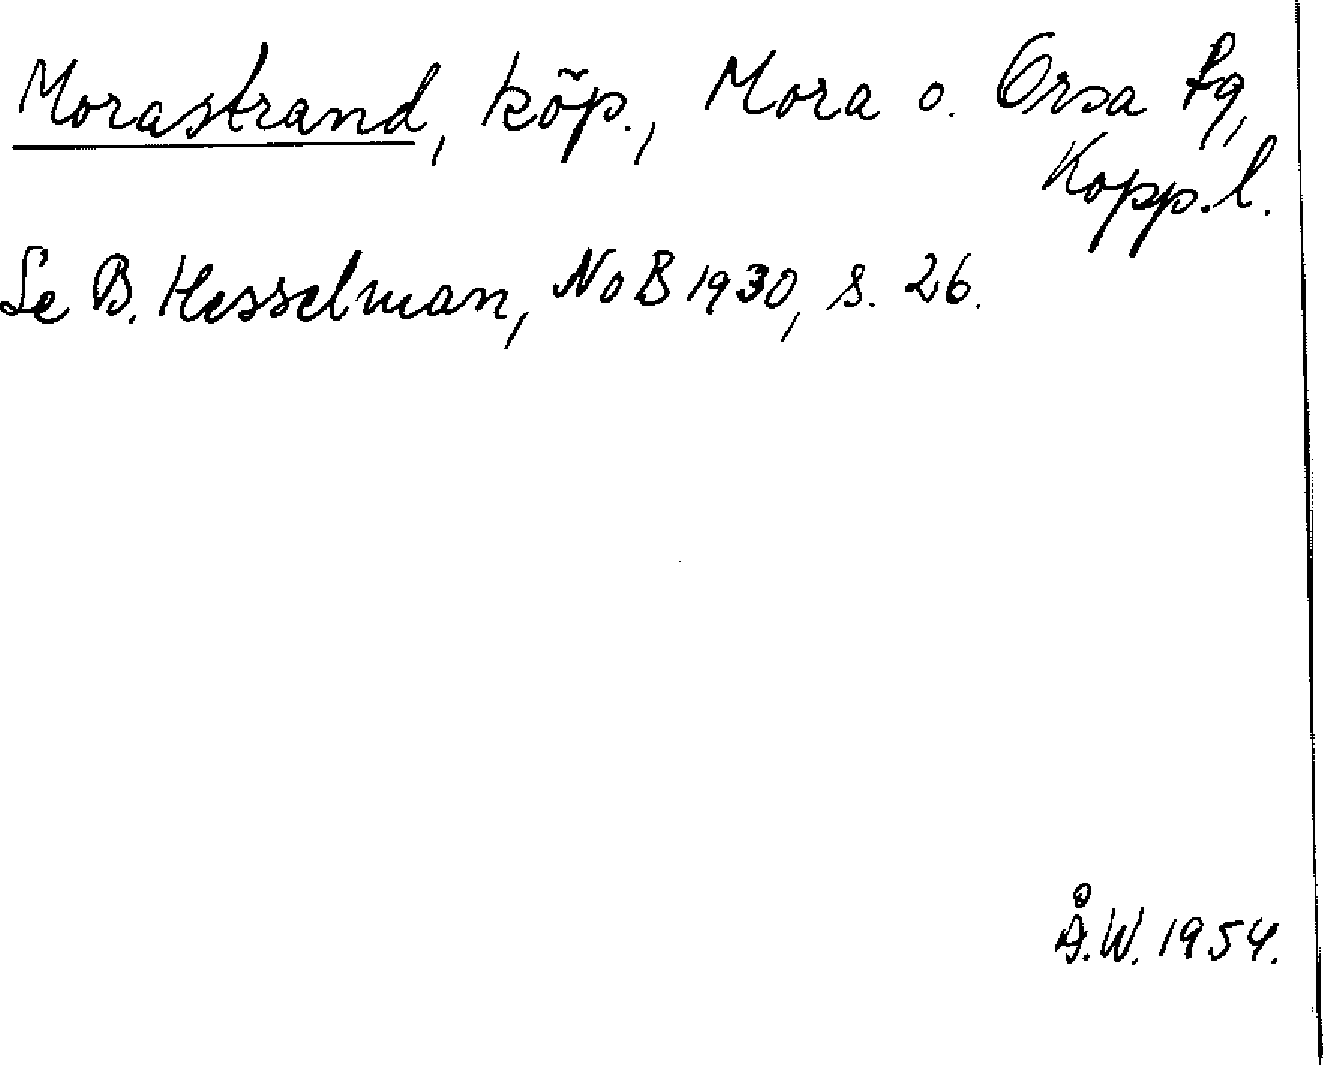 Morastrand, köp., Mora o. Orsa tg,
Kopp.l.
Se B. Hesselman, NoB 1930, s. 26.
Å.W. 1954.